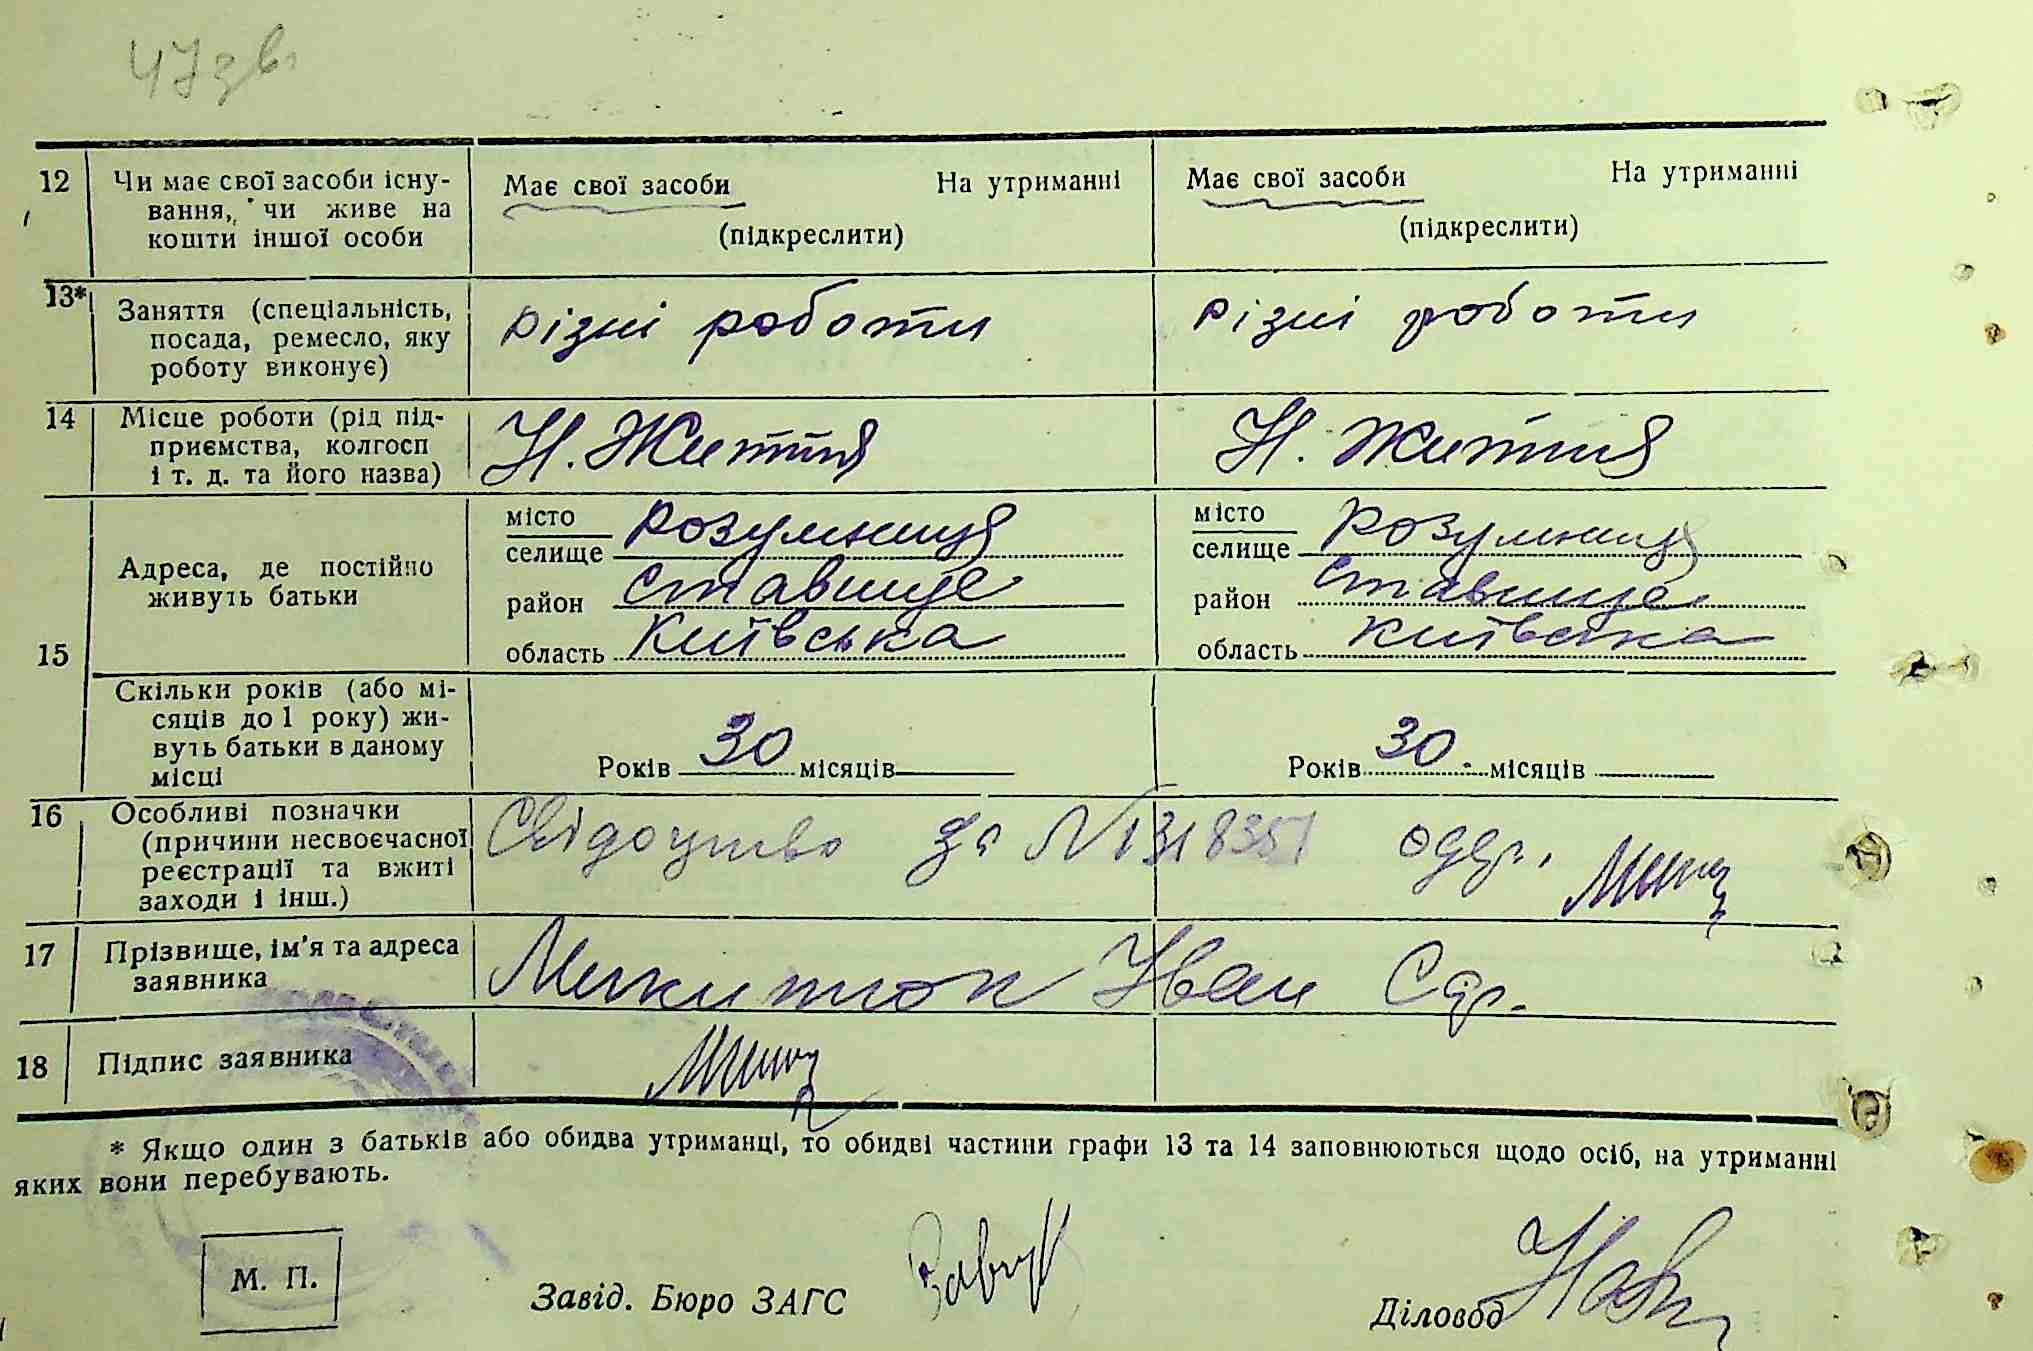 47 зв.
12 Чи має свої засоби існу- Має свої засоби На утриманні Має свої засоби На утриманні
вання, чи живе на
кошти іншої особи (підкреслити) (підкреслити)
13* Заняття (спеціальність, різні роботи різні роботи
посада, ремесло, яку
роботу виконує)
14 Місце роботи (рід під- Н. Життя Н. Життя
приємства, колгосп
і т. д. та його назва)
15 Адреса, де постійно
живуть батьки
місто Розумниця місто Розумниця
селище селище
район Ставище район Ставище
область Київська область Київська
Скільки років (або мі-
сяців до 1 року) жи-
вуть батьки в даному
місці
Років 30 місяців Років 30 місяців
16 Особливі позначки Свідоцтво за № 1318351 одер.
(причини несвоєчасної
реєстрації та вжиті
заходи і інш.)
17 Прізвище, ім'я та адреса Микитюк Іван
заявника
18 Підпис заявника
* Якщо один з батьків або обидва утриманці, то обидві частини графи 13 та 14 заповнюються щодо осіб, на утриманні
яких вони перебувають.
М. П.
Завід. Бюро ЗАГС
Діловод